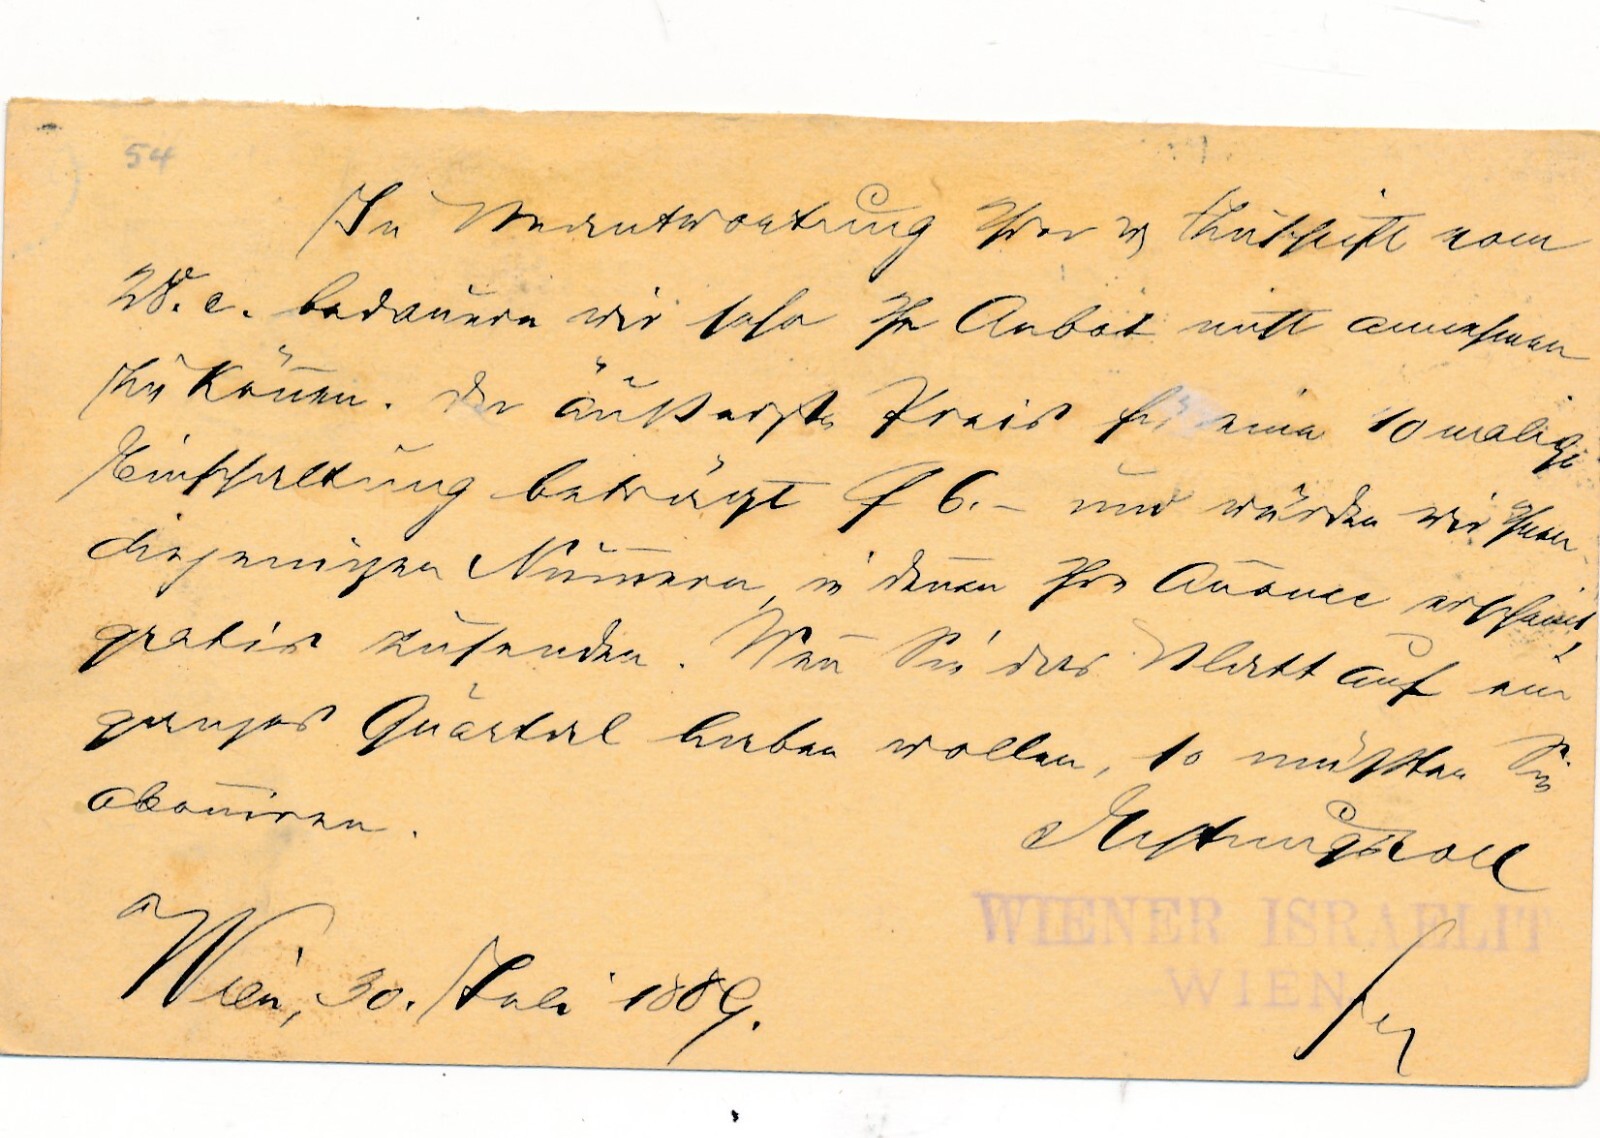 54
In Beantwortung Ihrer w. Zuschrift vom
28. c. bedauern wir sehr Ihr Anbot nicht annehmen
zu können. Der äußerste Preis für eine 10 malige
Einschaltung beträgt f 6.- und würden wir Ihnen
diejenigen Nummern, in denen Ihre Annonce erscheint,
gratis zusenden. Wenn Sie das Blatt auf ein
ganzes Quartal haben wollen, so müßten Sie
abonniren.
Achtungsvoll
WIENER ISRAELIT
WIEN
Wien, 30. Juli 1889.